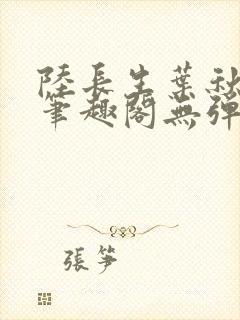 陸長生葉秋
筆趣閣無彈
張笋